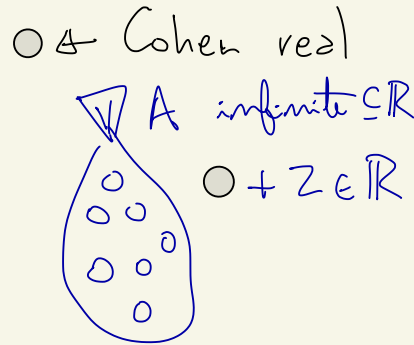 Cohen real
A infinite ⊆ ℝ
+ Z ∈ ℝ